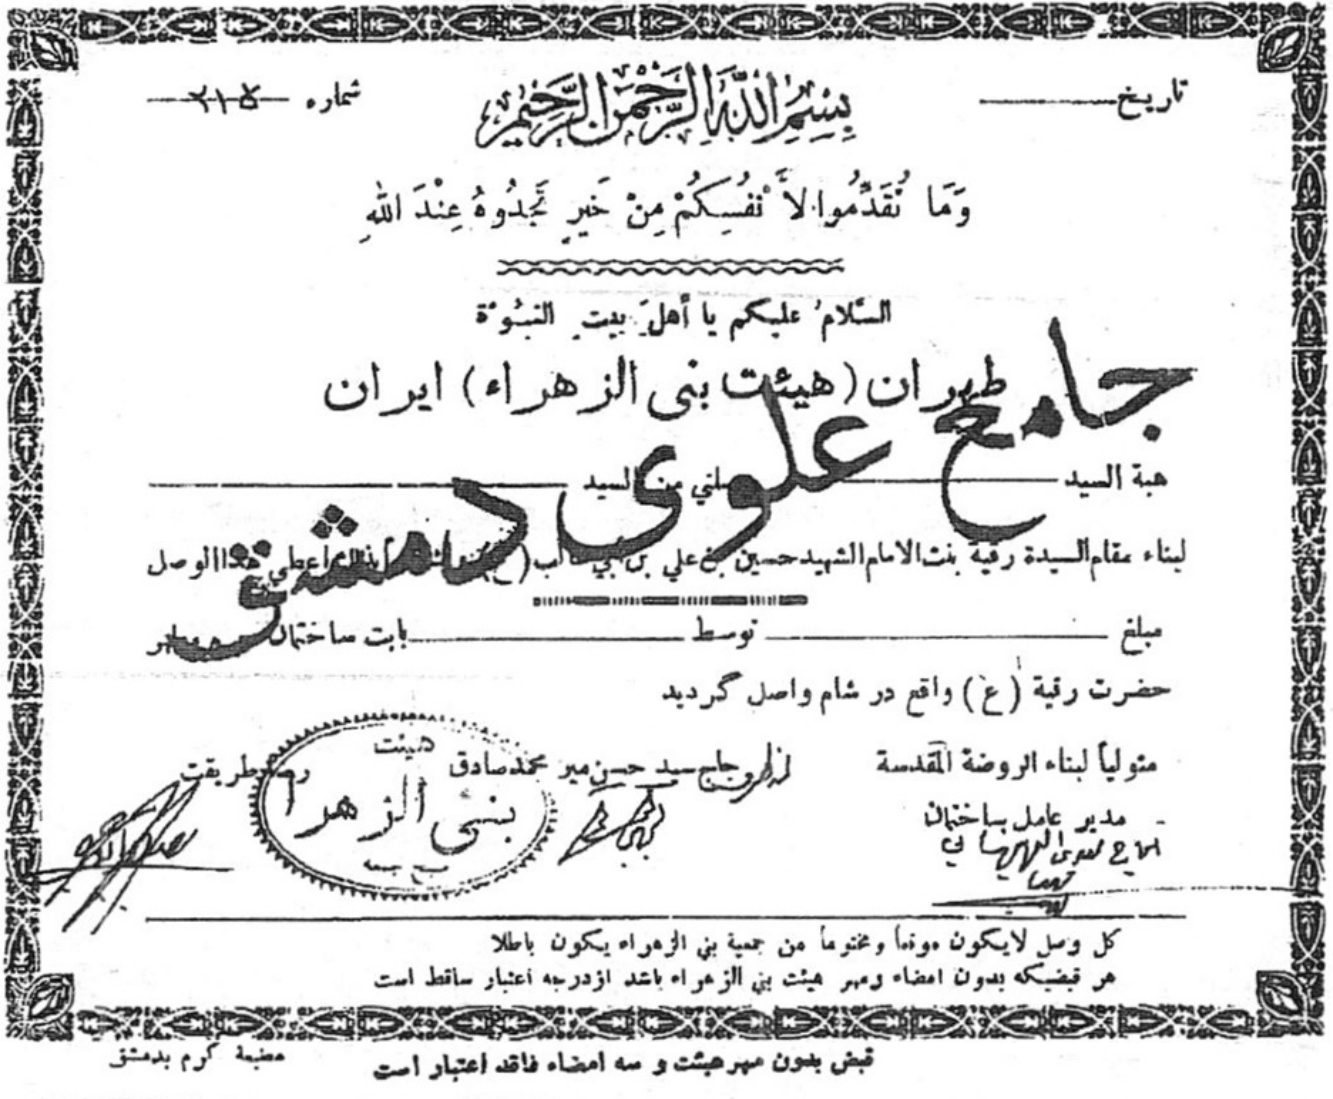 تاريخ
شماره ٢١٥
بِسْمِ اللَّهِ الرَّحْمَنِ الرَّحِيمِ
وَمَا تُقَدِّمُوا لاَ نْفُسِكُمْ مِنْ خَيرٍ تَجِدُوهُ عِنْدَ اللهِ
السَّلامُ عليكم يا أهلَ بيتِ النبُوّة
طهران (هيئت بنی الزهراء) ايران
جامع علوی دمشق
هبة السيد من السيد
لبناء مقام السيدة رقية بنت الامام الشهيد حسين بن علي بن ابي اعطي هذا الوصل
مبلغ توسط بابت ساختمان
حضرت رقية (ع) واقع در شام واصل گرديد
متولياً لبناء الروضة المقدسة
حاج سيد حسن مير محمد صادق
رضا طريقت
مدير عامل ساختمان
الحاج
هيئت
بنی الزهرا
كل وصل لايكون موقعا ومختوما من جمعية بني الزهراء يكون باطلا
هر قبضيكه بدون امضاء ومهر هيئت بني الزهراء باشد ازدرجه اعتبار ساقط است
قبض بدون مهر هيئت و سه امضاء فاقد اعتبار است
مطبعة كرم بدمشق